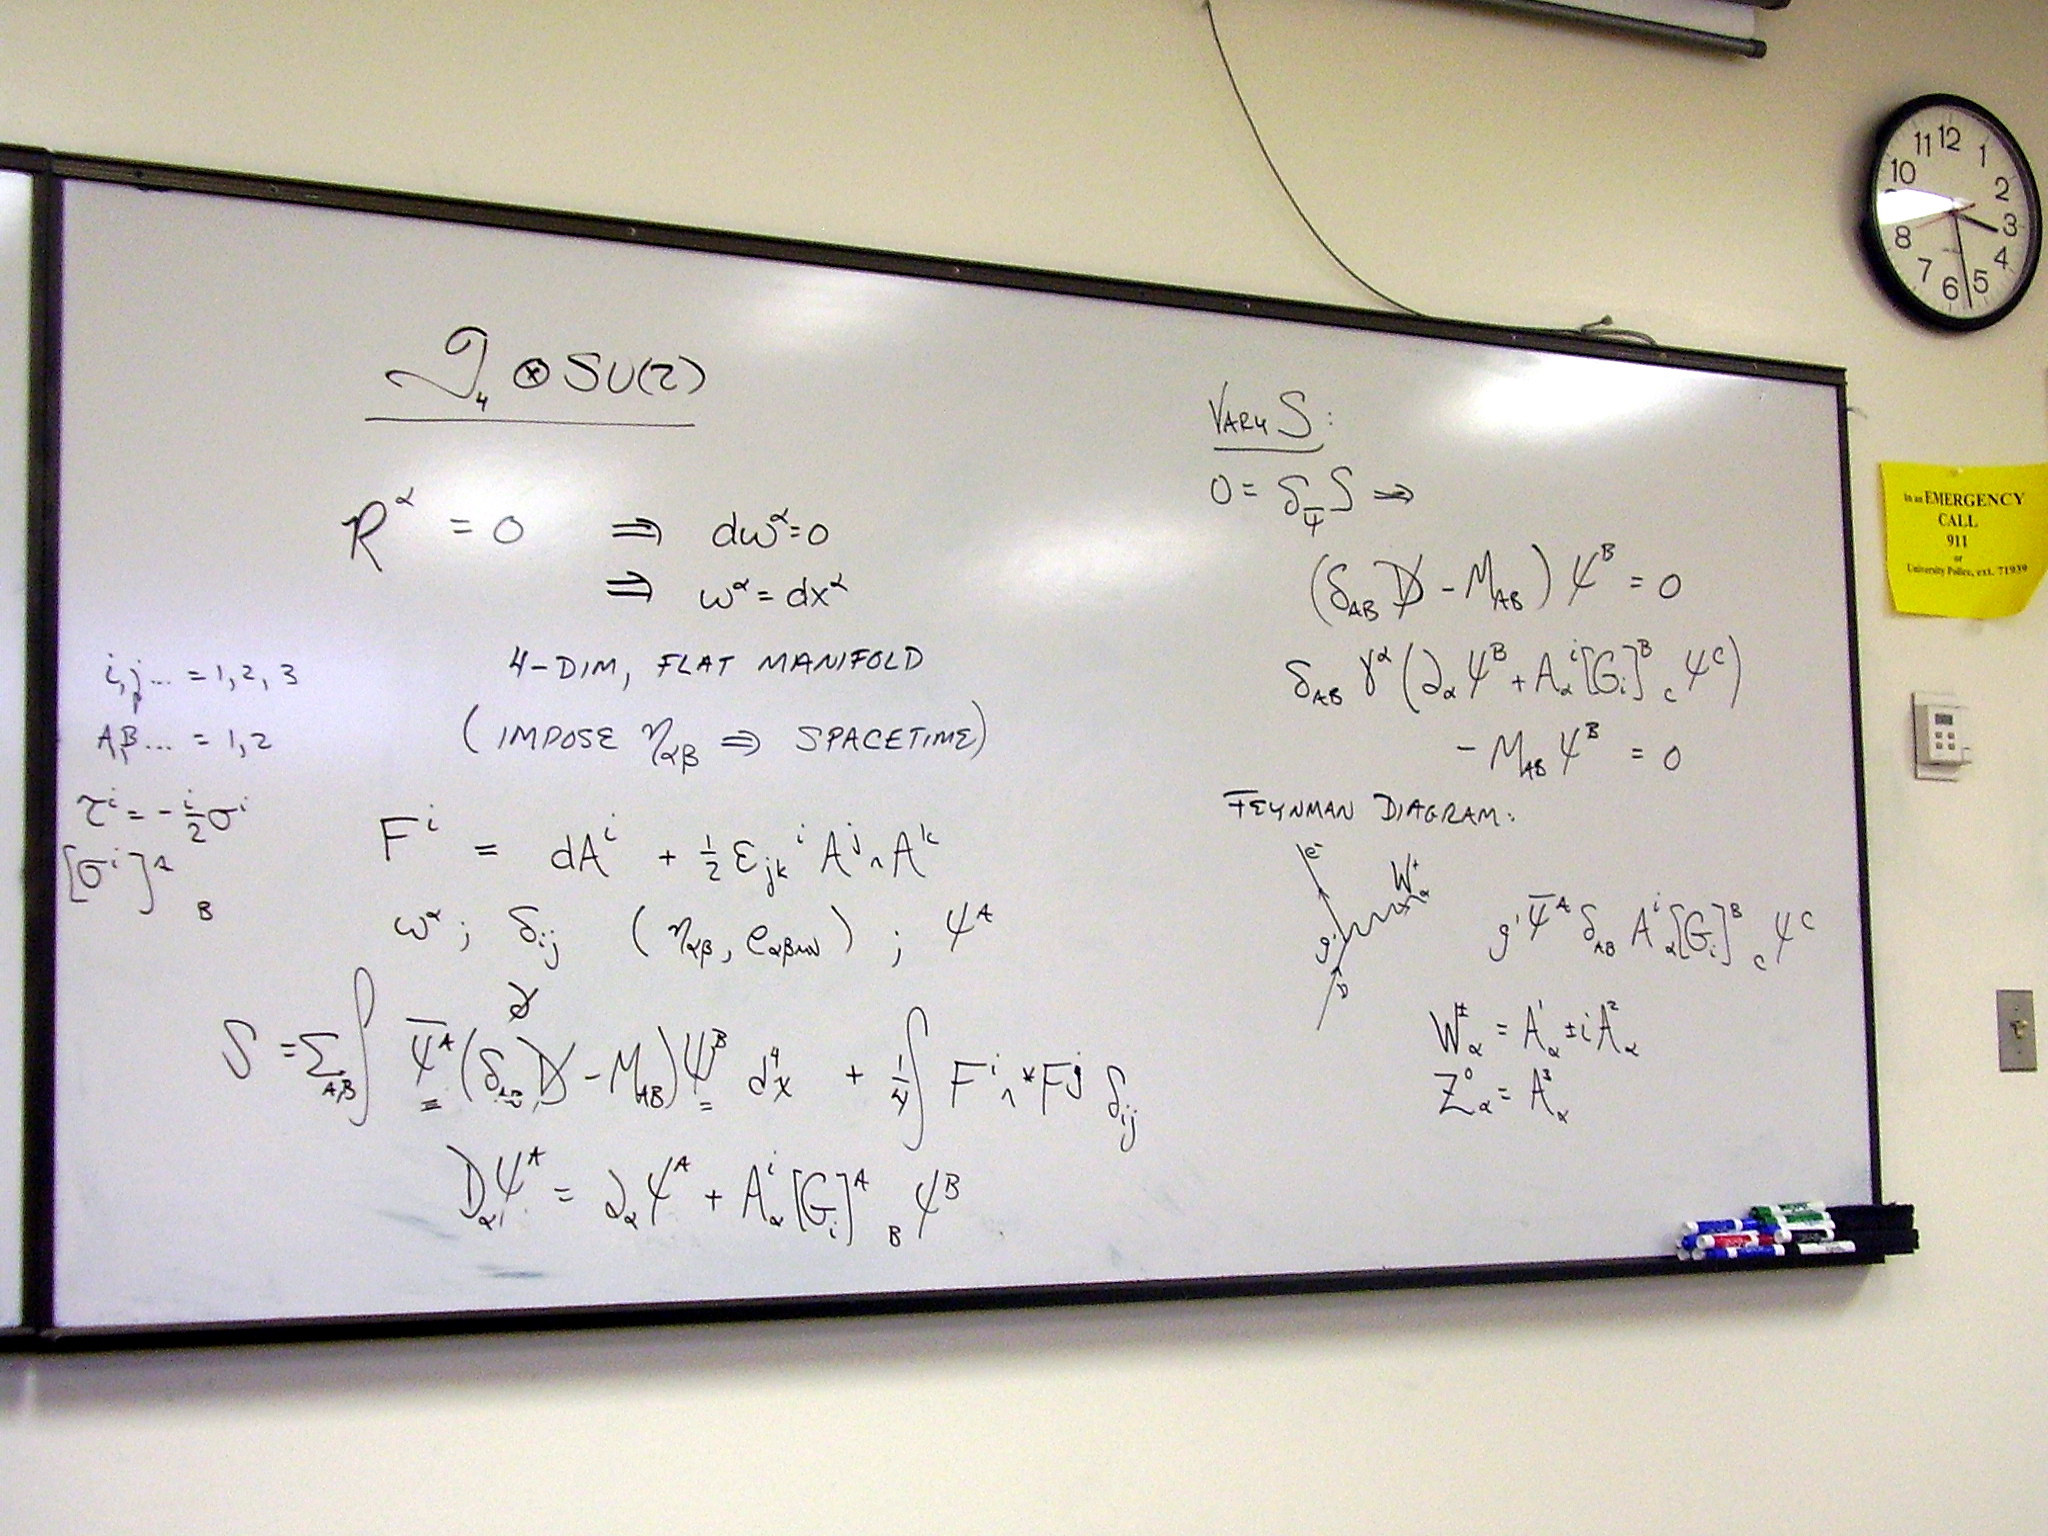 𝒯₄ ⊗ SU(2)
R^α = 0 ⇒ dω^α = 0
⇒ ω^α = dx^α
4-DIM, FLAT MANIFOLD
(IMPOSE η_αβ ⇒ SPACETIME)
i,j... = 1, 2, 3
A,B... = 1, 2
τ^i = -i/2 σ^i
[σ^i]^A_B
F^i = dA^i + 1/2 ε_jk^i A^j ∧ A^k
ω^α ; δ_ij (η_αβ, e_αβμν) ; ψ^A
S = Σ_A,B ∫ ψ̄^A (δ_AB D̸ - M_AB) ψ^B d^4x + 1/4 ∫ F^i ∧ *F^j δ_ij
D_α ψ^A = ∂_α ψ^A + A^i_α [G_i]^A_B ψ^B
VARY S:
0 = δ_ψ̄ S ⇒
(δ_AB D̸ - M_AB) ψ^B = 0
δ_AB γ^α (∂_α ψ^B + A^i_α [G_i]^B_C ψ^C)
- M_AB ψ^B = 0
FEYNMAN DIAGRAM:
e^-
W^+_α
g'
ν
g' ψ̄^A δ_AB A^i_α [G_i]^B_C ψ^C
W^±_α = A^1_α ± i A^2_α
Z^0_α = A^3_α
12
1
2
3
4
5
6
7
8
10
11
In an EMERGENCY
CALL
911
or
University Police, ext. 71939